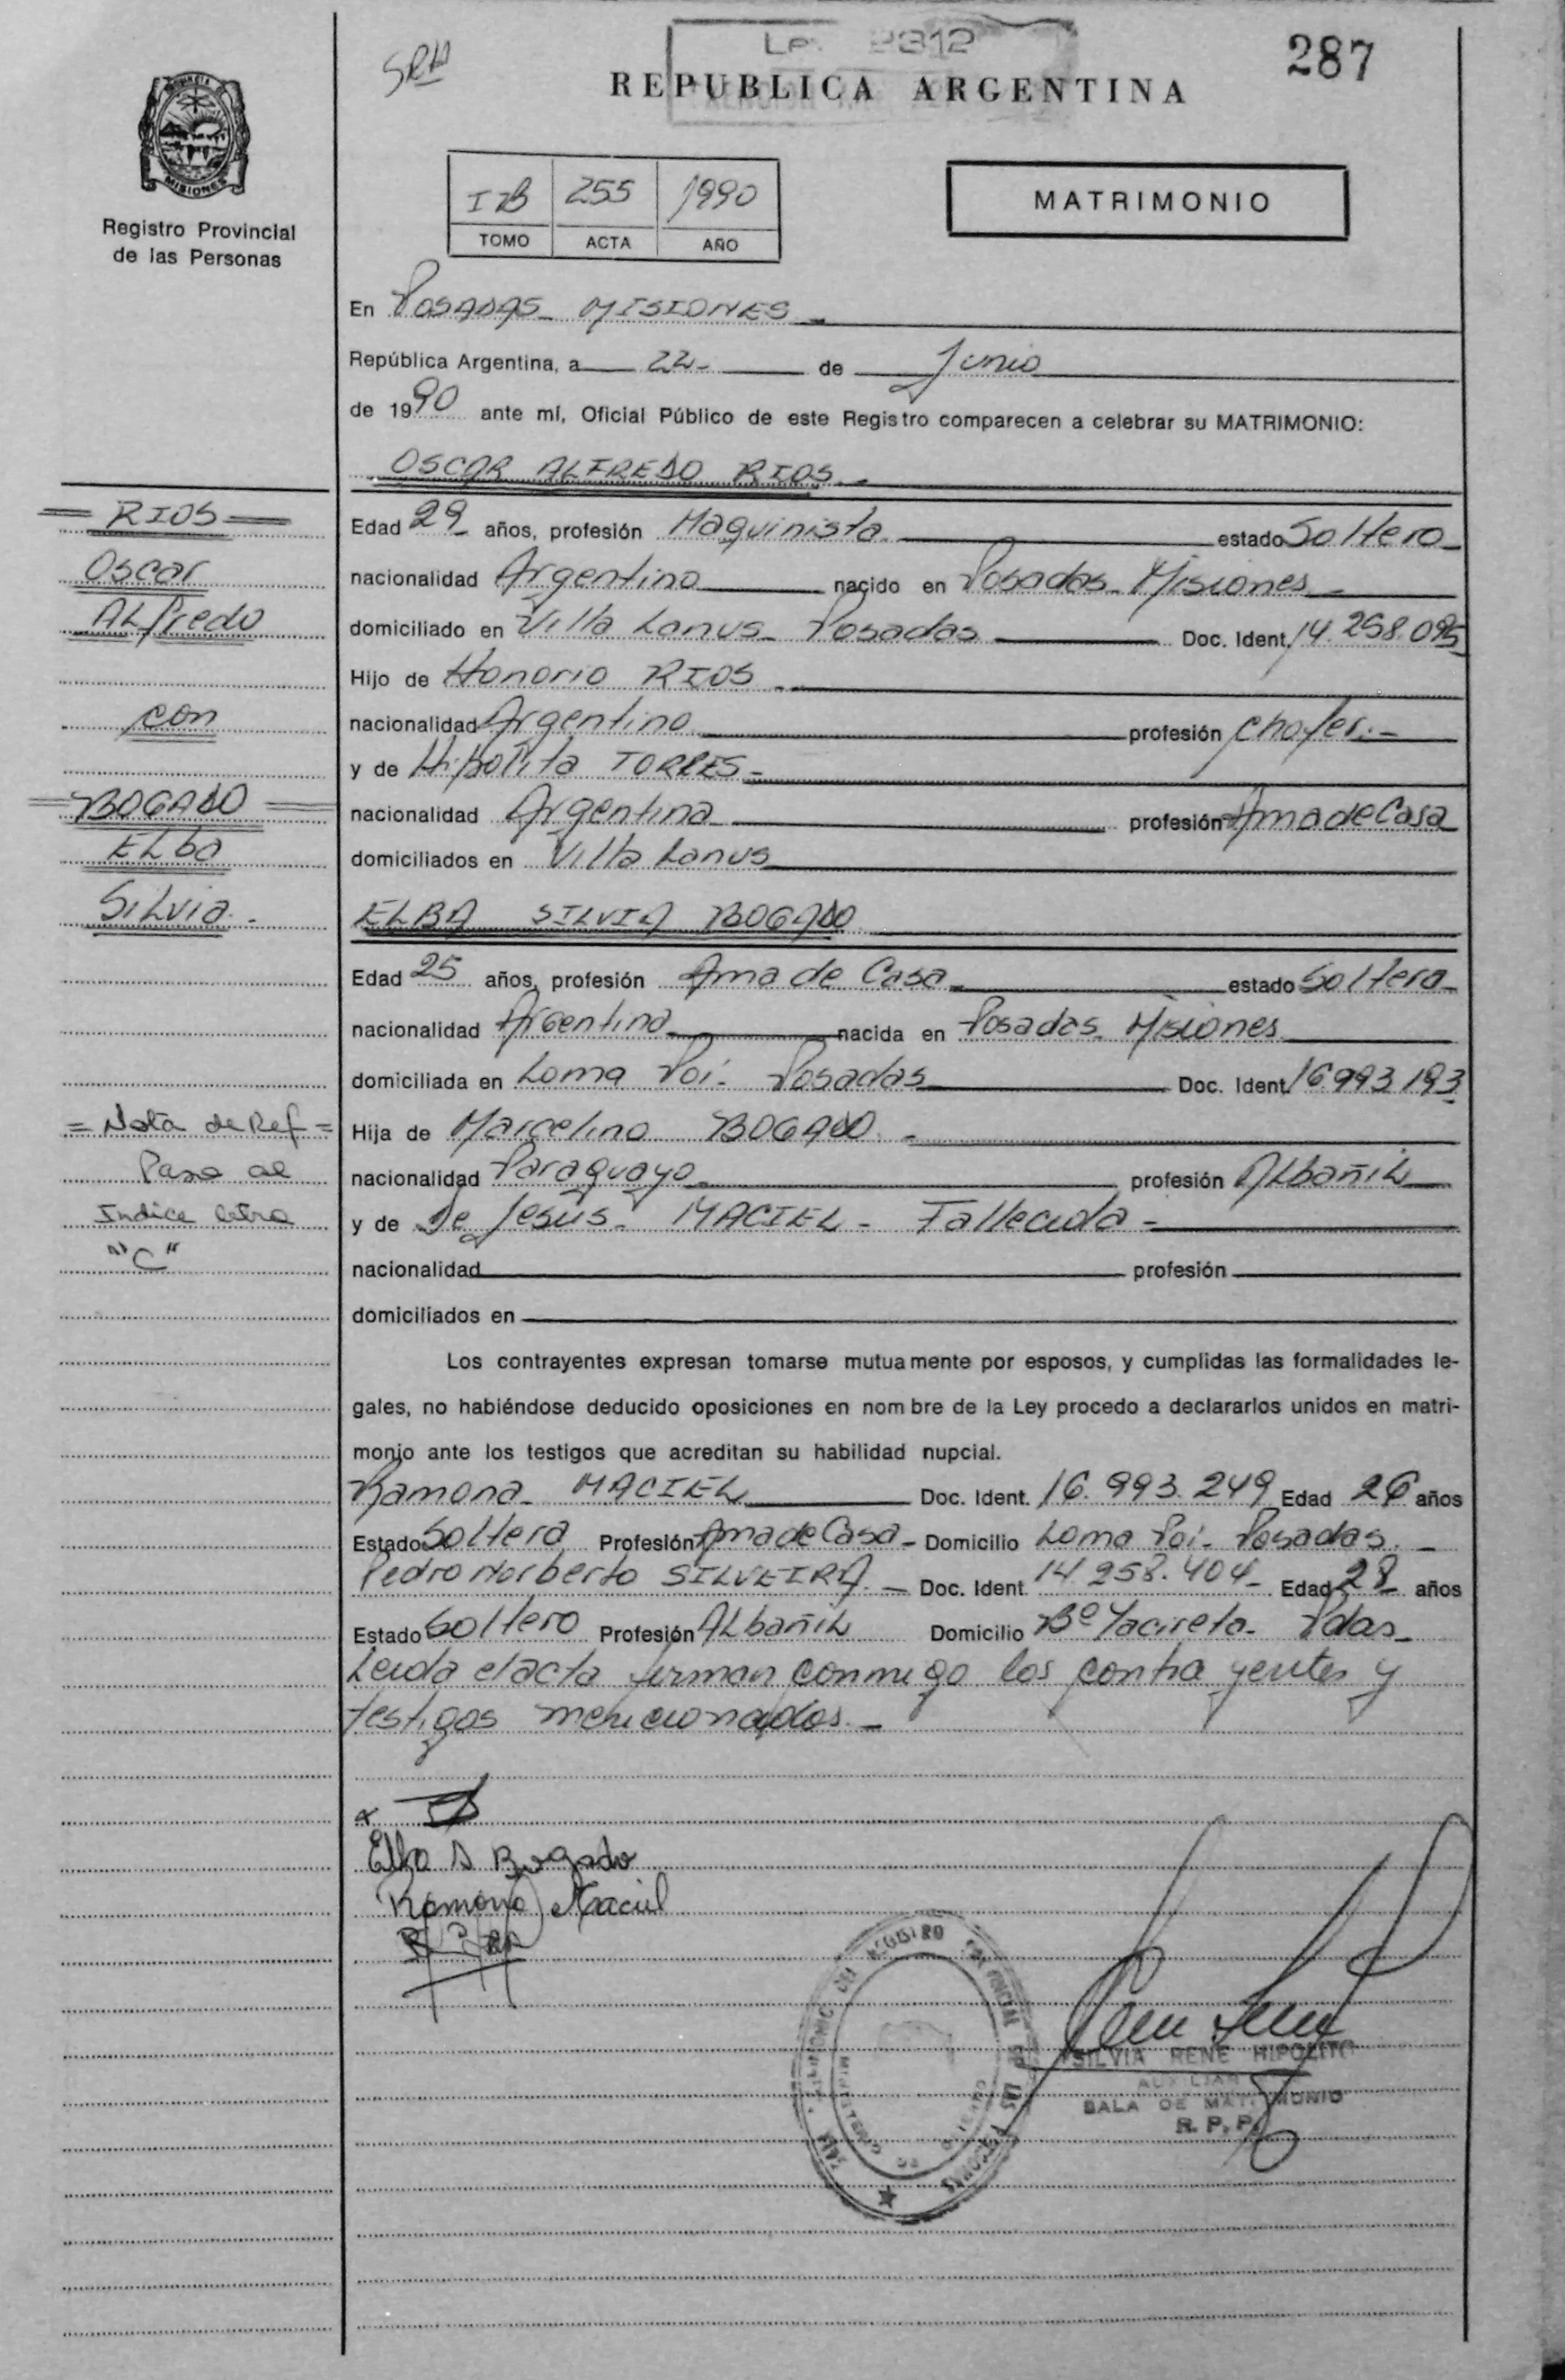 SRH
Ley 2312
287
REPUBLICA ARGENTINA
MISIONES
Registro Provincial
de las Personas
255 1990
TOMO ACTA AÑO
MATRIMONIO
En POSADAS - MISIONES -
República Argentina, a 22- de Junio
de 1990 ante mí, Oficial Público de este Registro comparecen a celebrar su MATRIMONIO:
OSCAR ALFREDO RIOS -
= RIOS =
Oscar
Alfredo
con
= BOGADO =
Elba
Silvia -
Edad 29 años, profesión Maquinista estado Soltero
nacionalidad Argentina nacido en Posadas - Misiones -
domiciliado en Villa Lanus - Posadas Doc. Ident. 14.258.095
Hijo de Honorio RIOS -
nacionalidad Argentino profesión chofer.-
y de Hipolita TORRES -
nacionalidad Argentina profesión Ama de Casa
domiciliados en Villa Lanus
ELBA SILVIA BOGADO
Edad 25 años, profesión Ama de Casa estado Soltera
nacionalidad Argentina nacida en Posadas - Misiones
domiciliada en Loma Poi - Posadas Doc. Ident. 16.993.193
Hija de Marcelino BOGADO -
nacionalidad Paraguayo profesión Albañil
y de De Jesús - MACIEL - Fallecida -
nacionalidad profesión
domiciliados en
= Nota de Ref =
Pasa al
Indice letra
"C"
Los contrayentes expresan tomarse mutuamente por esposos, y cumplidas las formalidades le-
gales, no habiéndose deducido oposiciones en nombre de la Ley procedo a declararlos unidos en matri-
monio ante los testigos que acreditan su habilidad nupcial.
Ramona - MACIEL Doc. Ident. 16.993.249 Edad 26 años
Estado Soltera Profesión Ama de Casa - Domicilio Loma Poi - Posadas. -
Pedro Norberto SILVEIRA - Doc. Ident. 14.258.404 - Edad 28 años
Estado Soltero Profesión Albañil Domicilio Bº Yacireta - Pdas -
Leida el acta firman conmigo los contrayentes y
testigos mencionados. -
Elba S Bogado
Ramona Maciel
REGISTRO PROVINCIAL DE LAS PERSONAS
MINISTERIO DE GOBIERNO
SILVIA RENE HIPOLITO
AUXILIAR
SALA DE MATRIMONIO
R. P. P.